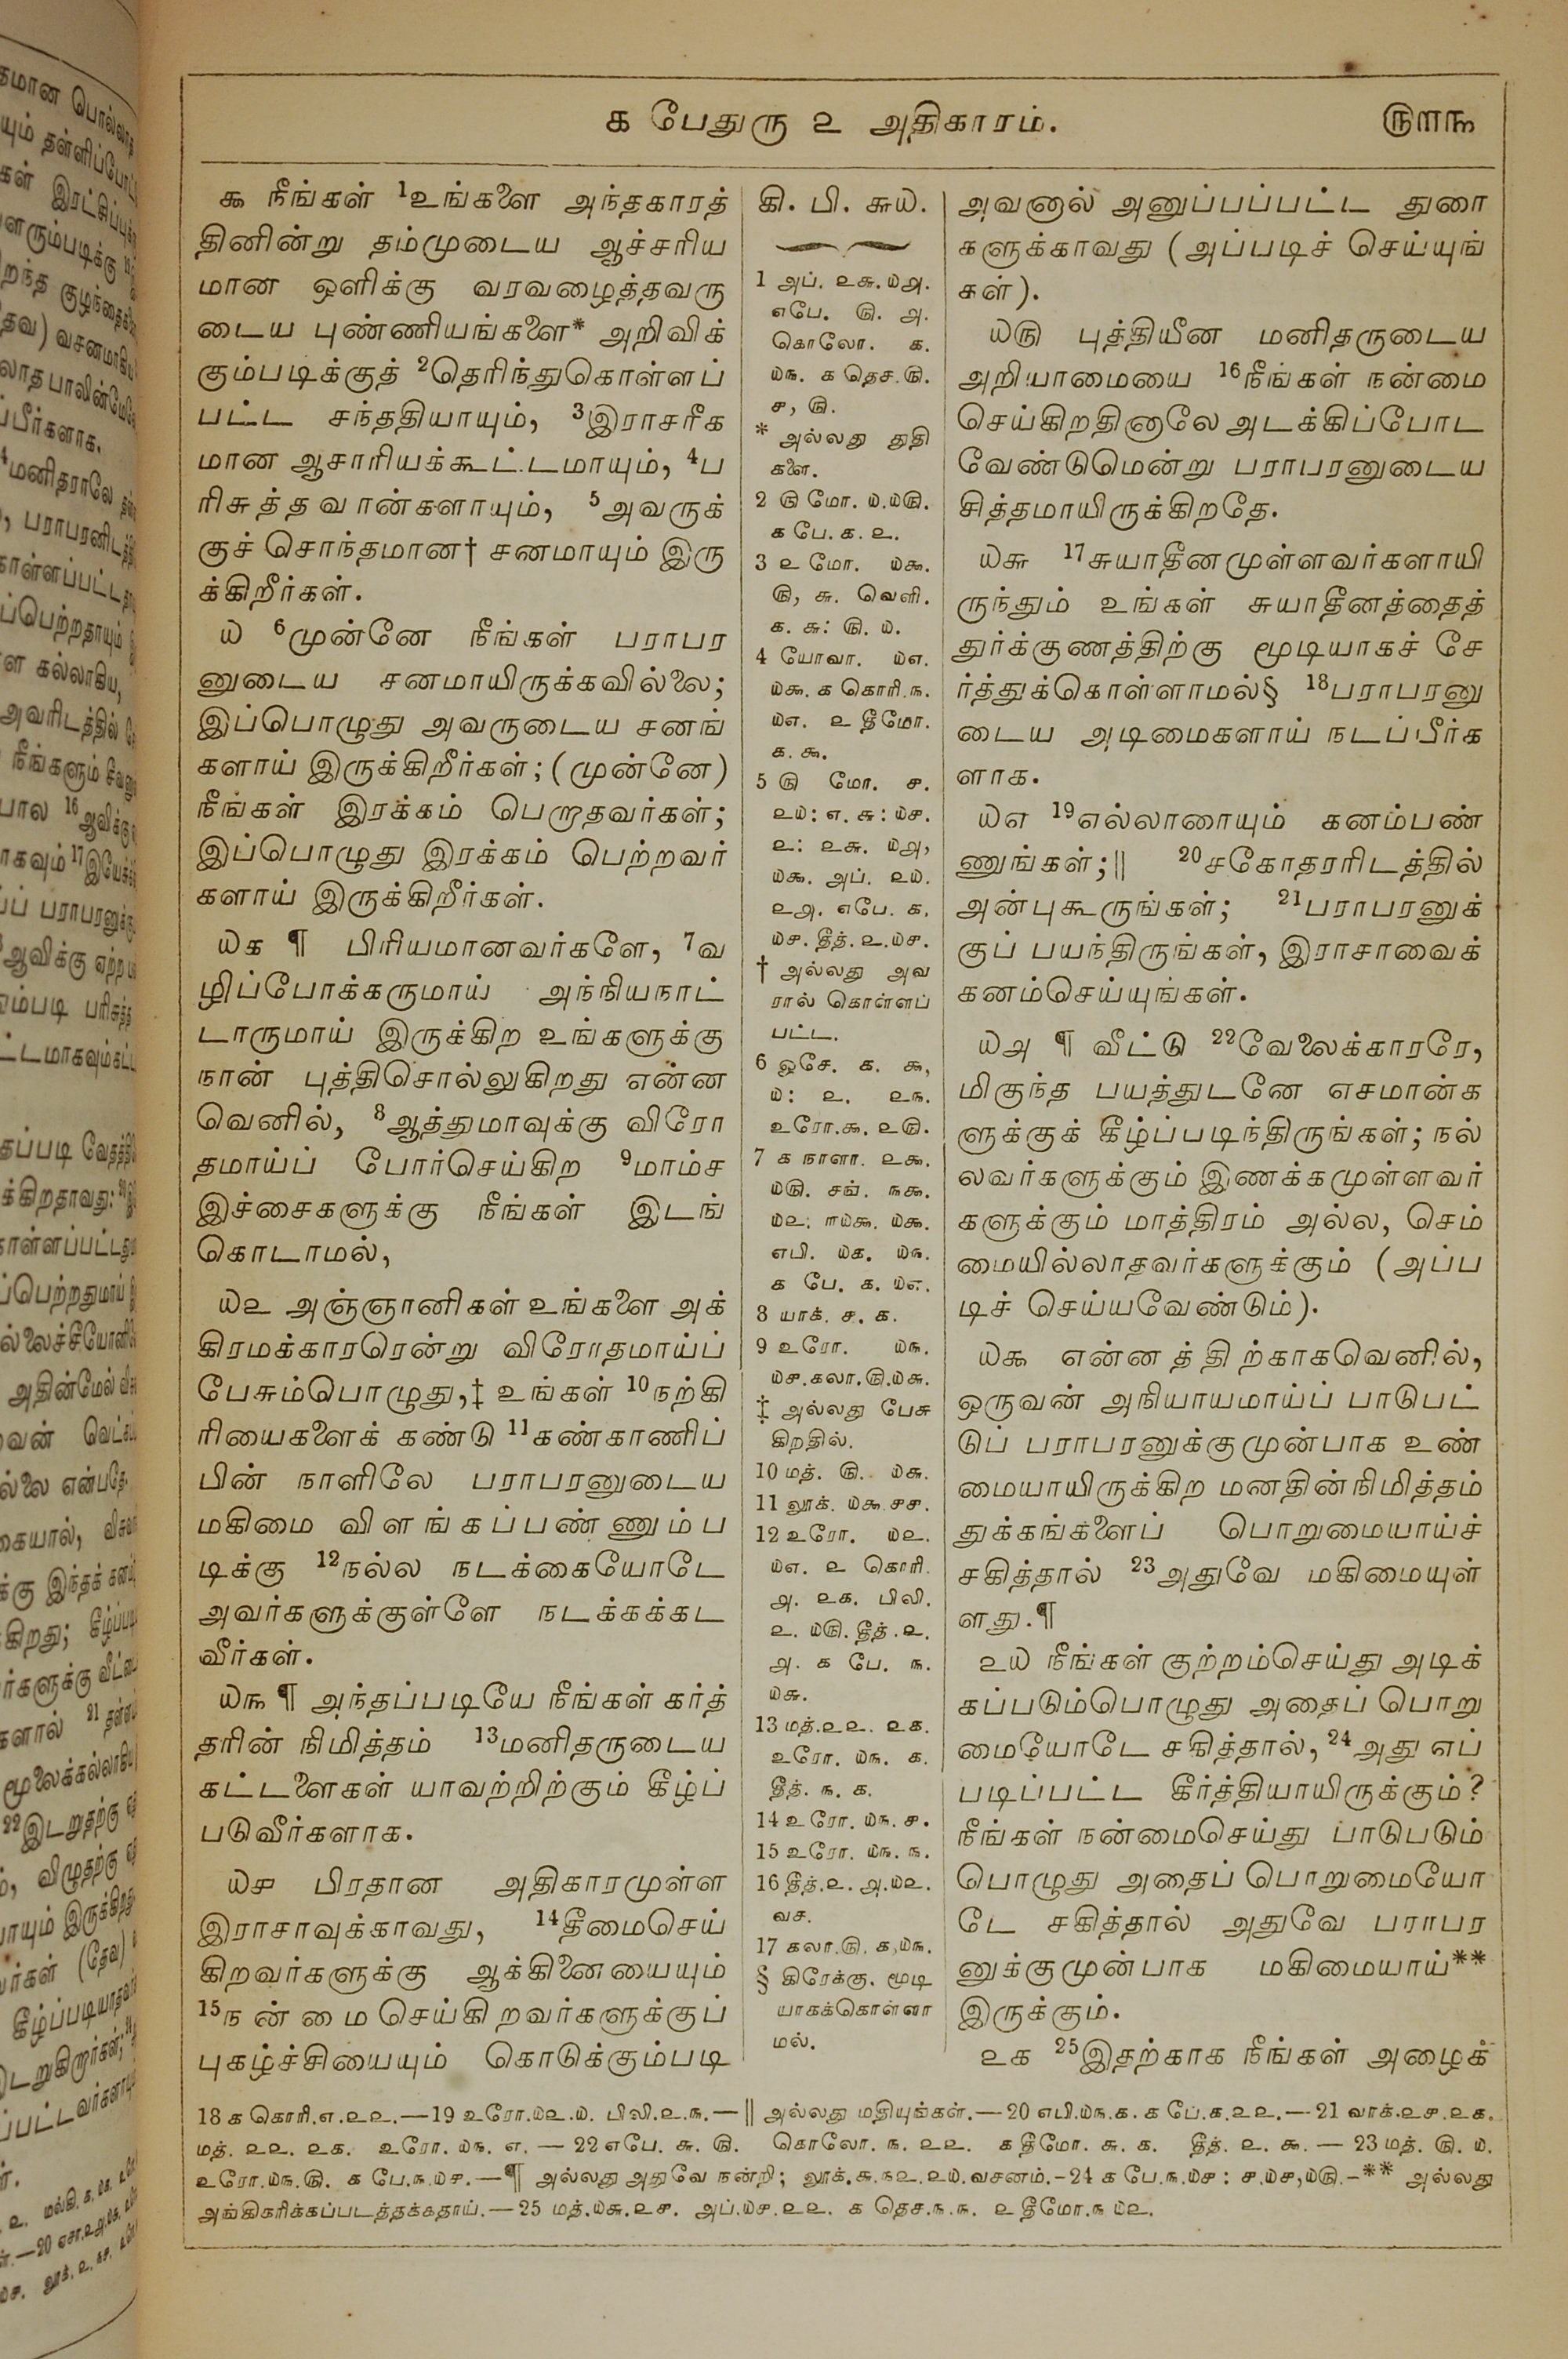 ௧ பேதுரு ௨ அதிகாரம்.
௫௱௩
௯ நீங்கள் 1உங்களை அந்தகாரத்
தினின்று தம்முடைய ஆச்சரிய
மான ஒளிக்கு வரவழைத்தவரு
டைய புண்ணியங்களை* அறிவிக்
கும்படிக்குத் 2தெரிந்துகொள்ளப்
பட்ட சந்ததியாயும், 3இராசரீக
மான ஆசாரியக்கூட்டமாயும், 4ப
ரிசுத்தவான்களாயும், 5அவருக்
குச் சொந்தமான† சனமாயும் இரு
க்கிறீர்கள்.
௰ 6முன்னே நீங்கள் பராபர
னுடைய சனமாயிருக்கவில்லை;
இப்பொழுது அவருடைய சனங்
களாய் இருக்கிறீர்கள்; (முன்னே)
நீங்கள் இரக்கம் பெறாதவர்கள்;
இப்பொழுது இரக்கம் பெற்றவர்
களாய் இருக்கிறீர்கள்.
௰௧ ¶ பிரியமானவர்களே, 7வ
ழிப்போக்கருமாய் அந்நியநாட்
டாருமாய் இருக்கிற உங்களுக்கு
நான் புத்திசொல்லுகிறது என்ன
வெனில், 8ஆத்துமாவுக்கு விரோ
தமாய்ப் போர்செய்கிற 9மாம்ச
இச்சைகளுக்கு நீங்கள் இடங்
கொடாமல்,
௰௨ அஞ்ஞானிகள் உங்களை அக்
கிரமக்காரரென்று விரோதமாய்ப்
பேசும்பொழுது,‡ உங்கள் 10நற்கி
ரியைகளைக் கண்டு 11கண்காணிப்
பின் நாளிலே பராபரனுடைய
மகிமை விளங்கப்பண்ணும்ப
டிக்கு 12நல்ல நடக்கையோடே
அவர்களுக்குள்ளே நடக்கக்கட
வீர்கள்.
௰௩ ¶ அந்தப்படியே நீங்கள் கர்த்
தரின் நிமித்தம் 13மனிதருடைய
கட்டளைகள் யாவற்றிற்கும் கீழ்ப்
படுவீர்களாக.
௰௪ பிரதான அதிகாரமுள்ள
இராசாவுக்காவது, 14தீமைசெய்
கிறவர்களுக்கு ஆக்கினையையும்
15நன்மைசெய்கிறவர்களுக்குப்
புகழ்ச்சியையும் கொடுக்கும்படி
கி. பி. ௬௰.
1 அப். ௨௬. ௰௮.
எபே. ௫. ௮.
கொலோ. ௧.
௰௩. ௧ தெச. ௫.
௪, ௫.
* அல்லது துதி
களை.
2 ௫ மோ. ௰. ௰௫.
௧ பே. ௧. ௨.
3 ௨ மோ. ௰௯.
௫, ௬. வெளி.
௧. ௬: ௫. ௰.
4 யோவா. ௰௭.
௰௯. ௧ கொரி. ௩.
௰௭. ௨ தீமோ.
௧. ௯.
5 ௫ மோ. ௪.
௨௰: ௭. ௬: ௰௪.
௨: ௨௬. ௰௮,
௰௯. அப். ௨௰.
௨௮. எபே. ௧.
௰௪. தீத். ௨. ௰௪.
† அல்லது அவ
ரால் கொள்ளப்
பட்ட.
6 ஒசே. ௧. ௯,
௰: ௨. ௨௩.
உரோ. ௯. ௨௫.
7 ௧ நாளா. ௨௯.
௰௫. சங். ௩௯.
௰௨: ௱௰௯. ௰௯.
எபி. ௰௧. ௰௩.
௧ பே. ௧. ௰௭.
8 யாக். ௪. ௧.
9 உரோ. ௰௩.
௰௪. கலா. ௫. ௰௬.
‡ அல்லது பேசு
கிறதில்.
10 மத். ௫. ௰௬.
11 லூக். ௰௯. ௪௪.
12 உரோ. ௰௨.
௰௭. ௨ கொரி.
௮. ௨௧. பிலி.
௨. ௰௫. தீத். ௨.
௮. ௧ பே. ௩.
௰௬.
13 மத். ௨௨. ௨௧.
உரோ. ௰௩. ௧.
தீத். ௩. ௧.
14 உரோ. ௰௩. ௪.
15 உரோ. ௰௩. ௩.
16 தீத். ௨. ௮. ௰௨.
வச.
17 கலா. ௫. ௧, ௰௩.
§ கிரேக்கு. மூடி
யாகக்கொள்ளா
மல்.
அவனால் அனுப்பப்பட்ட துரை
களுக்காவது (அப்படிச் செய்யுங்
கள்).
௰௫ புத்தியீன மனிதருடைய
அறியாமையை 16நீங்கள் நன்மை
செய்கிறதினாலே அடக்கிப்போட
வேண்டுமென்று பராபரனுடைய
சித்தமாயிருக்கிறதே.
௰௬ 17சுயாதீனமுள்ளவர்களாயி
ருந்தும் உங்கள் சுயாதீனத்தைத்
துர்க்குணத்திற்கு மூடியாகச் சே
ர்த்துக்கொள்ளாமல்§ 18பராபரனு
டைய அடிமைகளாய் நடப்பீர்க
ளாக.
௰௭ 19எல்லாரையும் கனம்பண்
ணுங்கள்;‖ 20சகோதரரிடத்தில்
அன்புகூருங்கள்; 21பராபரனுக்
குப் பயந்திருங்கள், இராசாவைக்
கனம்செய்யுங்கள்.
௰௮ ¶ வீட்டு 22வேலைக்காரரே,
மிகுந்த பயத்துடனே எசமான்க
ளுக்குக் கீழ்ப்படிந்திருங்கள்; நல்
லவர்களுக்கும் இணக்கமுள்ளவர்
களுக்கும் மாத்திரம் அல்ல, செம்
மையில்லாதவர்களுக்கும் (அப்ப
டிச் செய்யவேண்டும்).
௰௯ என்னத்திற்காகவெனில்,
ஒருவன் அநியாயமாய்ப் பாடுபட்
டுப் பராபரனுக்குமுன்பாக உண்
மையாயிருக்கிற மனதின்நிமித்தம்
துக்கங்களைப் பொறுமையாய்ச்
சகித்தால் 23அதுவே மகிமையுள்
ளது.¶
௨௰ நீங்கள் குற்றம்செய்து அடிக்
கப்படும்பொழுது அதைப் பொறு
மையோடே சகித்தால், 24அது எப்
படிப்பட்ட கீர்த்தியாயிருக்கும்?
நீங்கள் நன்மைசெய்து பாடுபடும்
பொழுது அதைப் பொறுமையோ
டே சகித்தால் அதுவே பராபர
னுக்குமுன்பாக மகிமையாய்**
இருக்கும்.
௨௧ 25இதற்காக நீங்கள் அழைக்
18 ௧ கொரி. ௭. ௨௨.—19 உரோ. ௰௨. ௰. பிலி. ௨. ௩.—‖ அல்லது மதியுங்கள்.—20 எபி. ௰௩. ௧. ௧ பே. ௧. ௨௨.—21 வாக். ௨௪. ௨௧.
மத். ௨௨. ௨௧. உரோ. ௰௩. ௭. — 22 எபே. ௬. ௫. கொலோ. ௩. ௨௨. ௧ தீமோ. ௬. ௧. தீத். ௨. ௯. — 23 மத். ௫. ௰.
உரோ. ௰௩. ௫. ௧ பே. ௩. ௰௪.—¶ அல்லது அதுவே நன்றி; லூக். ௬. ௩௨. ௨௰. வசனம்.-24 ௧ பே. ௩. ௰௪: ௪. ௰௪, ௰௫.-** அல்லது
அங்கிகரிக்கப்படத்தக்கதாய்.—25 மத். ௰௬. ௨௪. அப். ௰௪. ௨௨. ௧ தெச. ௩. ௩. ௨ தீமோ. ௩ ௰௨.